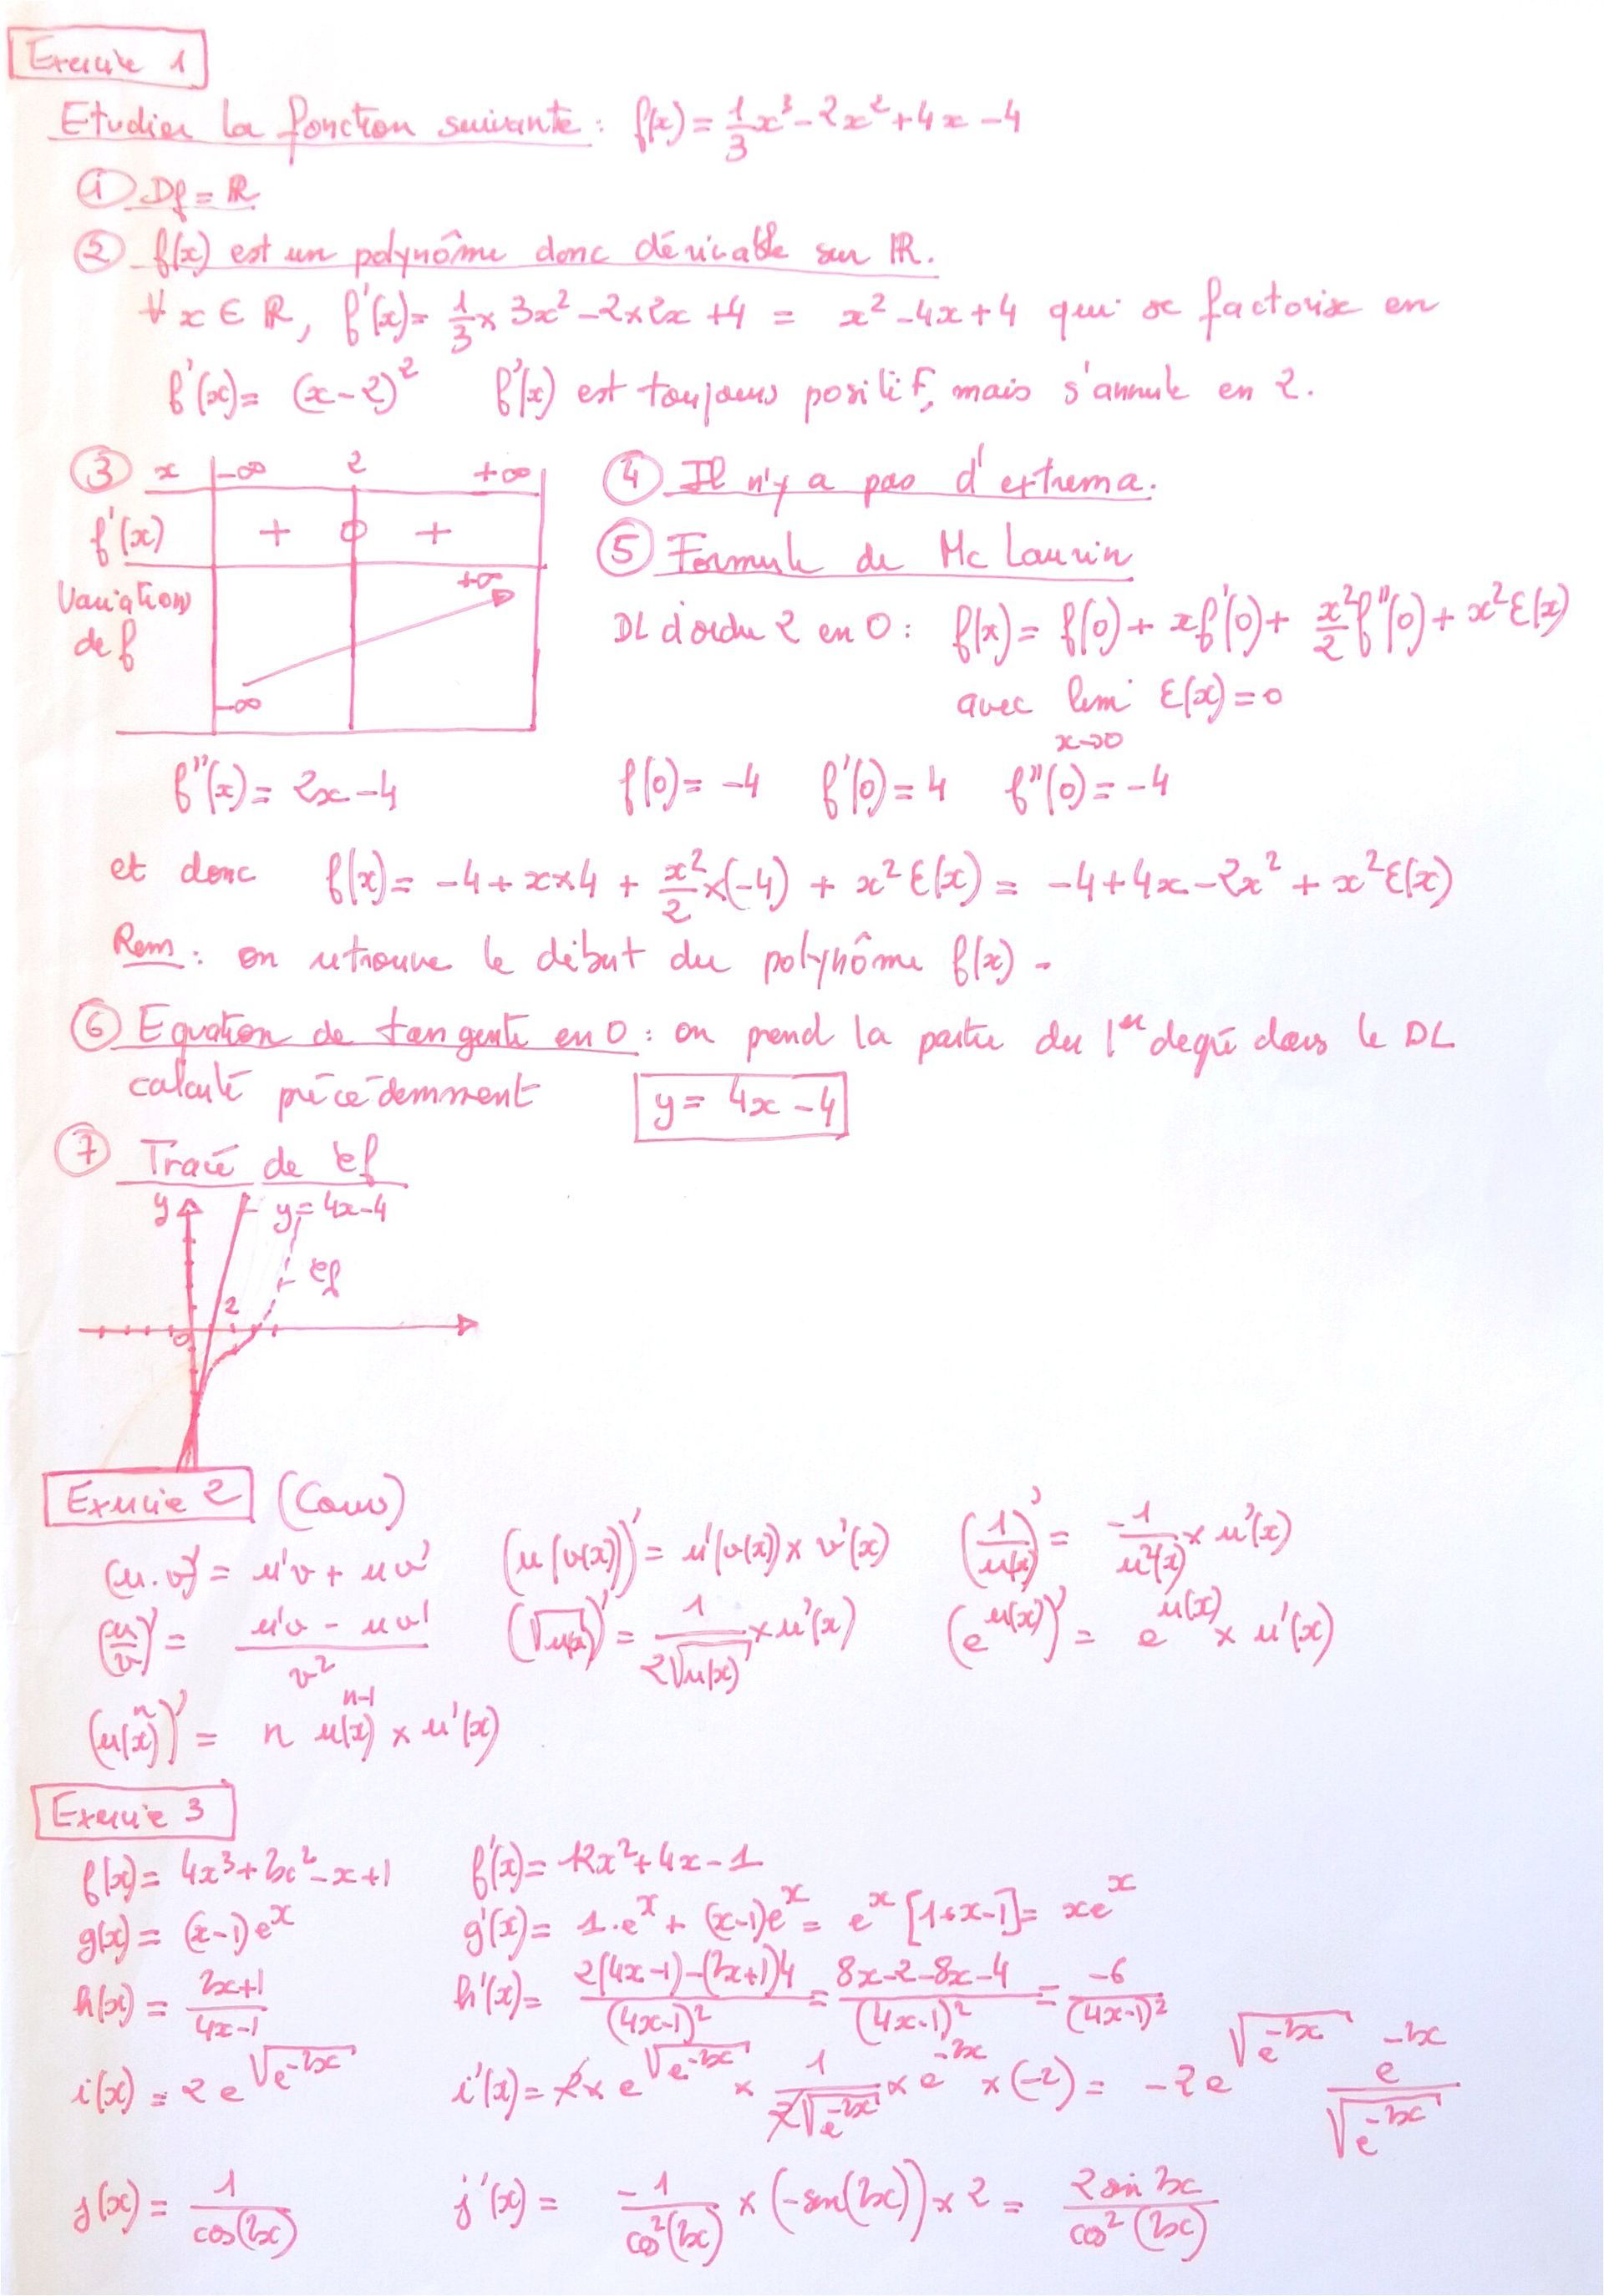 Exercice 1
Etudier la fonction suivante : f(x) = 1/3 x³ - 2x² + 4x - 4
① Df = ℝ
② f(x) est un polynôme donc dérivable sur ℝ.
∀ x ∈ ℝ, f'(x) = 1/3 × 3x² - 2×2x + 4 = x² - 4x + 4 qui se factorise en
f'(x) = (x-2)² f'(x) est toujours positif, mais s'annule en 2.
③ x -∞ 2 +∞
f'(x) + 0 +
Variation de f -∞ +∞
④ Il n'y a pas d'extrema.
⑤ Formule de Mc Laurin
DL d'ordre 2 en 0 : f(x) = f(0) + xf'(0) + x²/2 f''(0) + x² ε(x)
avec lim ε(x) = 0
x→0
f''(x) = 2x - 4 f(0) = -4 f'(0) = 4 f''(0) = -4
et donc f(x) = -4 + x×4 + x²/2 ×(-4) + x² ε(x) = -4 + 4x - 2x² + x² ε(x)
Rem : on retrouve le début du polynôme f(x).
⑥ Equation de tangente en 0 : on prend la partie du 1er degré dans le DL
calculé précédemment y = 4x - 4
⑦ Tracé de Cf
y y = 4x-4
Cf
2
0
Exercice 2 (Cours)
(u.v)' = u'v + uv' (u(v(x)))' = u'(v(x)) × v'(x) (1/u(x))' = -1/u²(x) × u'(x)
(u/v)' = (u'v - uv')/v² (√u(x))' = 1/(2√u(x)) × u'(x) (e^u(x))' = e^u(x) × u'(x)
(u(x)^n)' = n u(x)^(n-1) × u'(x)
Exercice 3
f(x) = 4x³ + 2x² - x + 1 f'(x) = 12x² + 4x - 1
g(x) = (x-1)e^x g'(x) = 1.e^x + (x-1)e^x = e^x [1+x-1] = xe^x
h(x) = (2x+1)/(4x-1) h'(x) = (2(4x-1)-(2x+1)4)/(4x-1)² = (8x-2-8x-4)/(4x-1)² = -6/(4x-1)²
i(x) = 2e^√(e^-2x) i'(x) = 2 × e^√(e^-2x) × 1/(2√(e^-2x)) × e^-2x × (-2) = -2e^√(e^-2x) e^-2x/√(e^-2x)
j(x) = 1/cos(2x) j'(x) = -1/cos²(2x) × (-sin(2x)) × 2 = 2 sin 2x/cos²(2x)